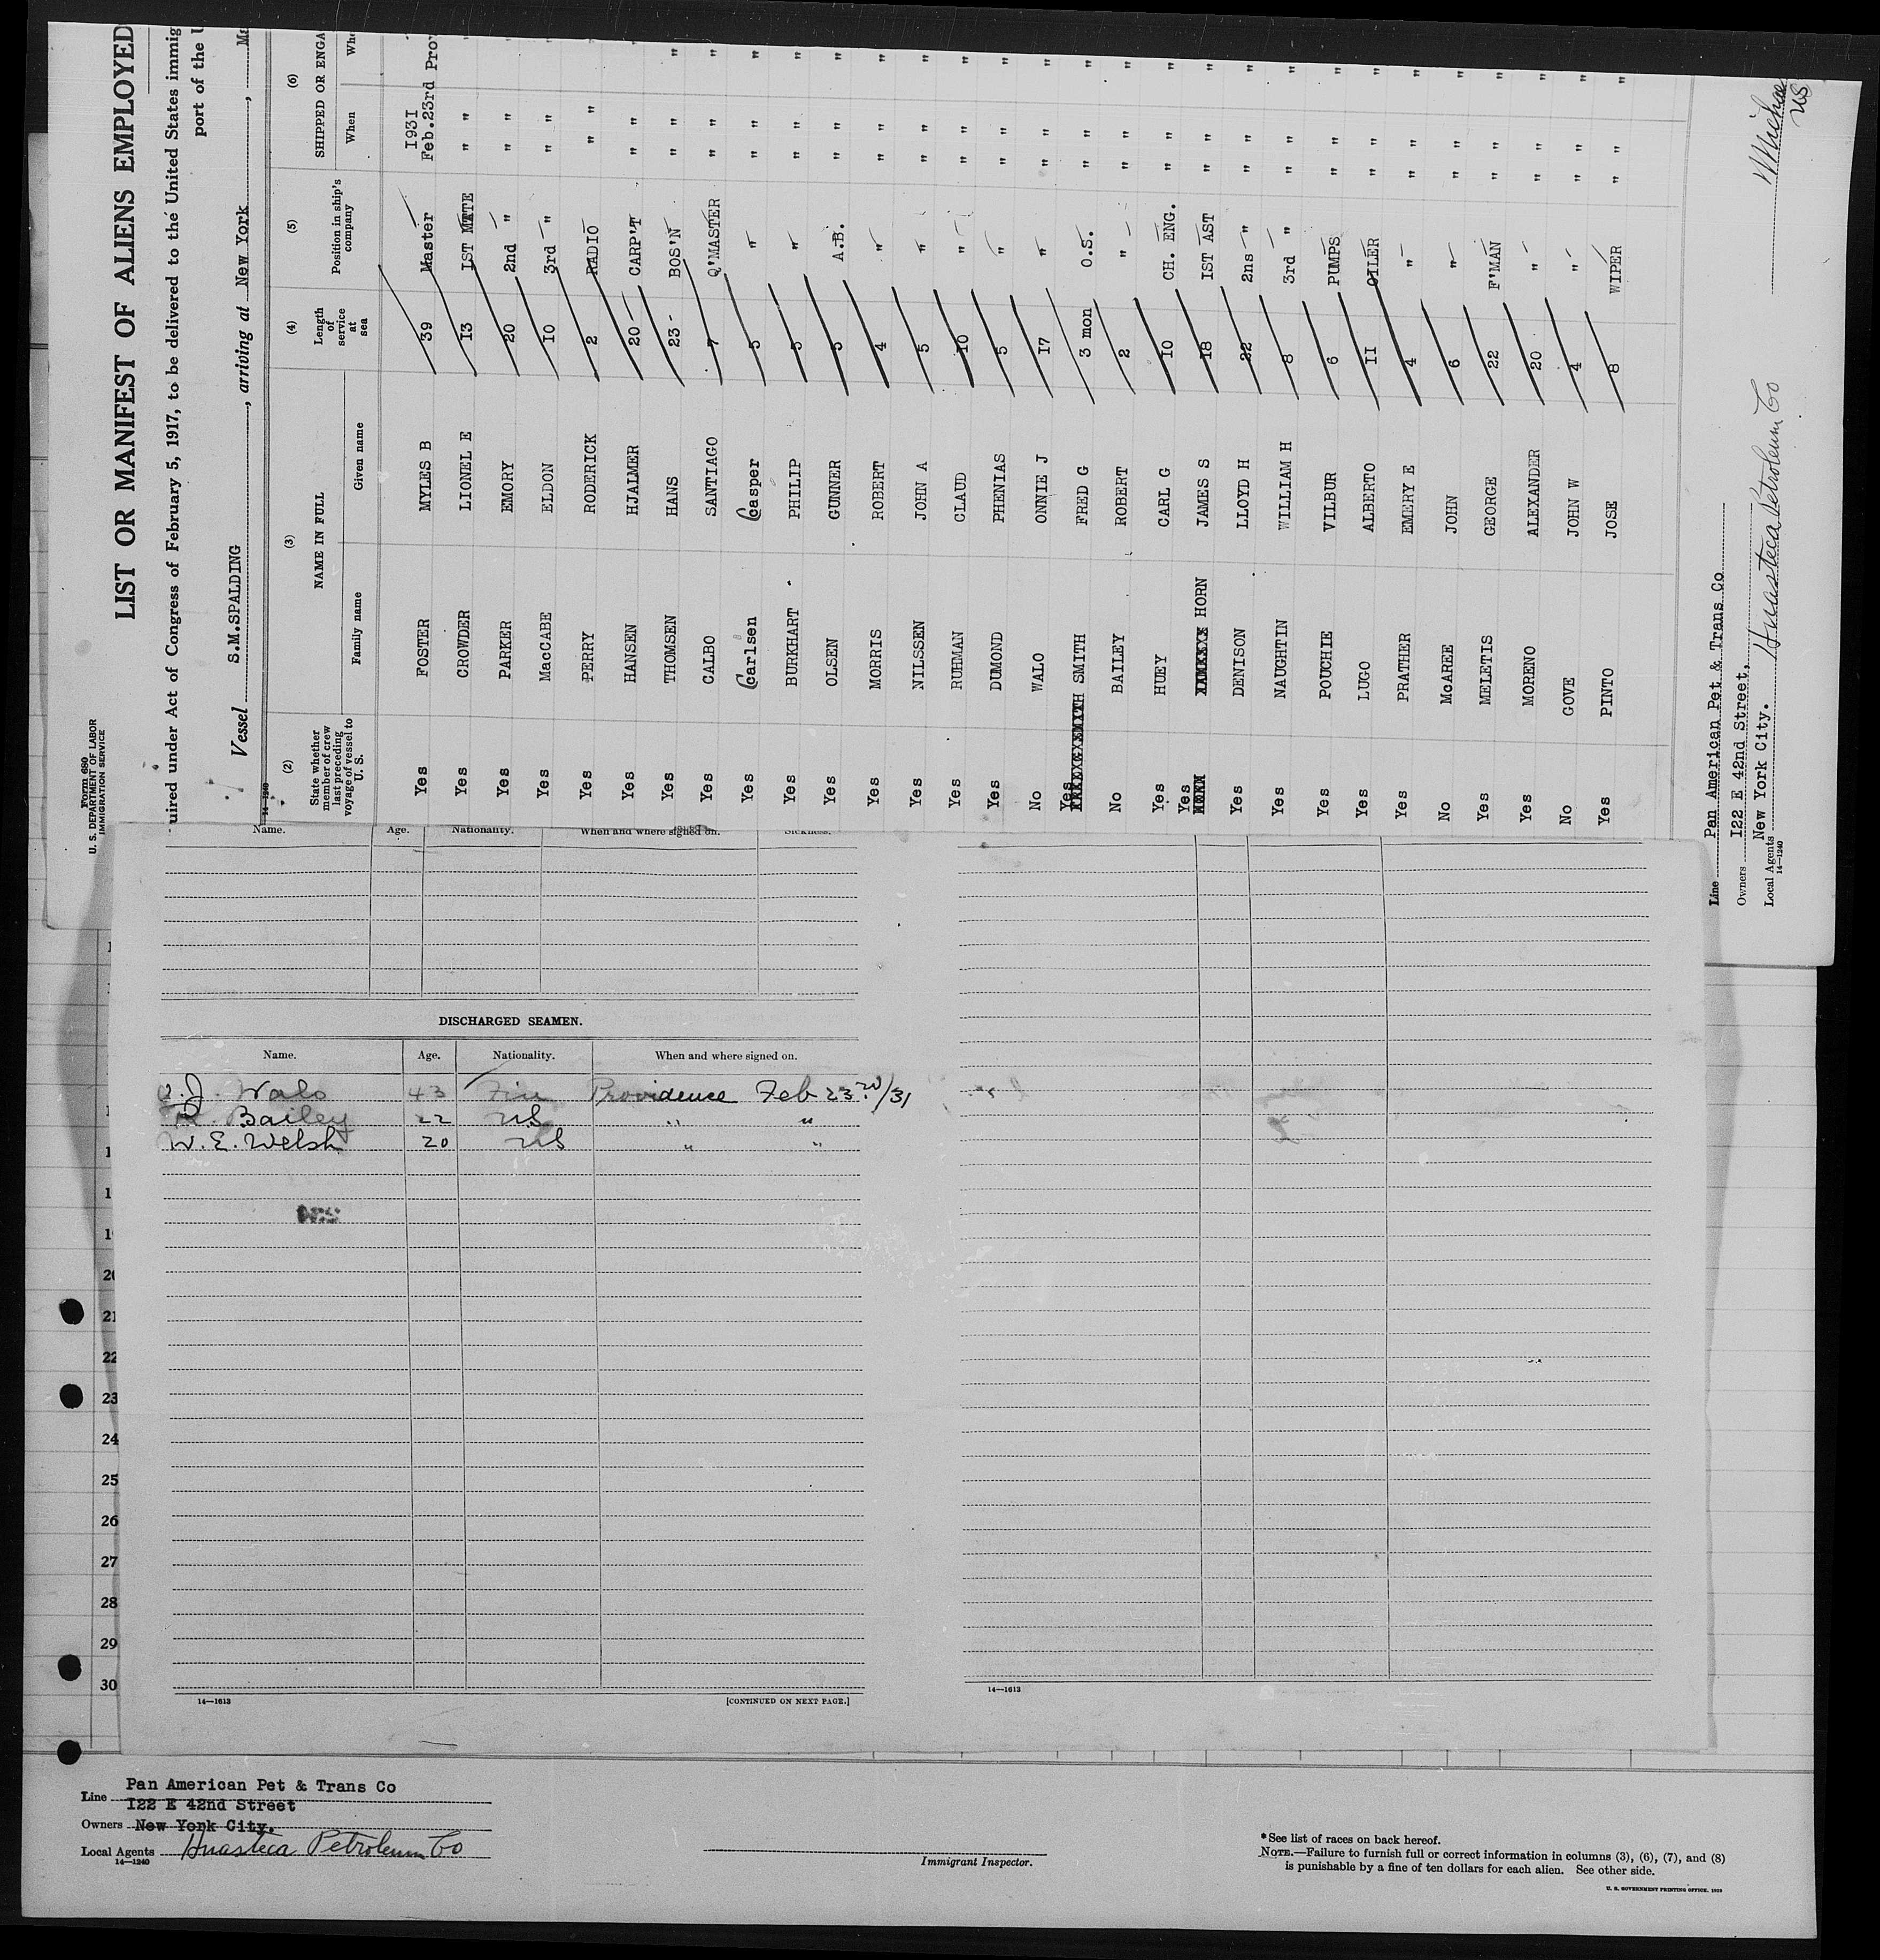 Form 680
U. S. DEPARTMENT OF LABOR
IMMIGRATION SERVICE
LIST OR MANIFEST OF ALIENS EMPLOYED
uired under Act of Congress of February 5, 1917, to be delivered to the United States immig
port of the U
Vessel S.M.SPALDING, arriving at New York,
14—1240
(2) (3) (4) (5) (6)
State whether member of crew last preceding voyage of vessel to U. S. NAME IN FULL Length of service at sea Position in ship's company SHIPPED OR ENGA
Family name Given name When Whe
1931
Yes FOSTER MYLES B 39 Master Feb.23rd Prov
Yes CROWDER LIONEL E 13 IST MATE " "
Yes PARKER EMORY 20 2nd " " "
Yes MacCABE ELDON 10 3rd " " "
Yes PERRY RODERICK 2 RADIO " "
Yes HANSEN HJALMER 20 CARP'T " " "
Yes THOMSEN HANS 23 BOS'N " " "
Yes CALBO SANTIAGO 7 Q'MASTER " " "
Yes Carlsen Casper 5 " " " "
Yes BURKHART PHILIP 5 " " " "
Yes OLSEN GUNNER 5 A.B. " " "
Yes MORRIS ROBERT 4 " " " "
Yes NILSSEN JOHN A 5 " " " "
Yes RUHMAN CLAUD 10 " " " "
Yes DUMOND PHENIAS 5 " " " "
No WALO ONNIE J 17 " " " "
Yes SMITH FRED G 3 mon O.S. " " "
No BAILEY ROBERT 2 " " " "
Yes HUEY CARL G 10 CH. ENG. " " "
Yes HORN JAMES S 18 IST AST " " "
Yes DENISON LLOYD H 22 2ns " " " "
Yes NAUGHTIN WILLIAM H 8 3rd " " " "
Yes POUCHIE VILBUR 6 PUMPS " " "
Yes LUGO ALBERTO 11 OILER " " "
Yes PRATHER EMERY E 4 " " " "
No McAREE JOHN 6 " " " "
Yes MELETIS GEORGE 22 F'MAN " " "
Yes MORENO ALEXANDER 20 " " " "
No GOVE JOHN W 4 " " " "
Yes PINTO JOSE 8 WIPER " " "
Line Pan American Pet & Trans Co
Owners I22 E 42nd Street,
New York City.
Local Agents Huasteca Petroleum Co
14—1240
Name. Age. Nationality. When and where signed on. Sickness.
DISCHARGED SEAMEN.
Name. Age. Nationality. When and where signed on.
O.J. Walo 43 Fin Providence Feb 23rd/31
R. Bailey 22 US " "
W. E. Welsh 20 US " "
20
21
22
23
24
25
26
27
28
29
30
14—1613
[CONTINUED ON NEXT PAGE.]
14—1613
Line Pan American Pet & Trans Co
I22 E 42nd Street
Owners New York City.
Local Agents Huasteca Petroleum Co
14—1240
Immigrant Inspector.
*See list of races on back hereof.
NOTE.—Failure to furnish full or correct information in columns (3), (6), (7), and (8)
is punishable by a fine of ten dollars for each alien. See other side.
U. S. GOVERNMENT PRINTING OFFICE. 1929